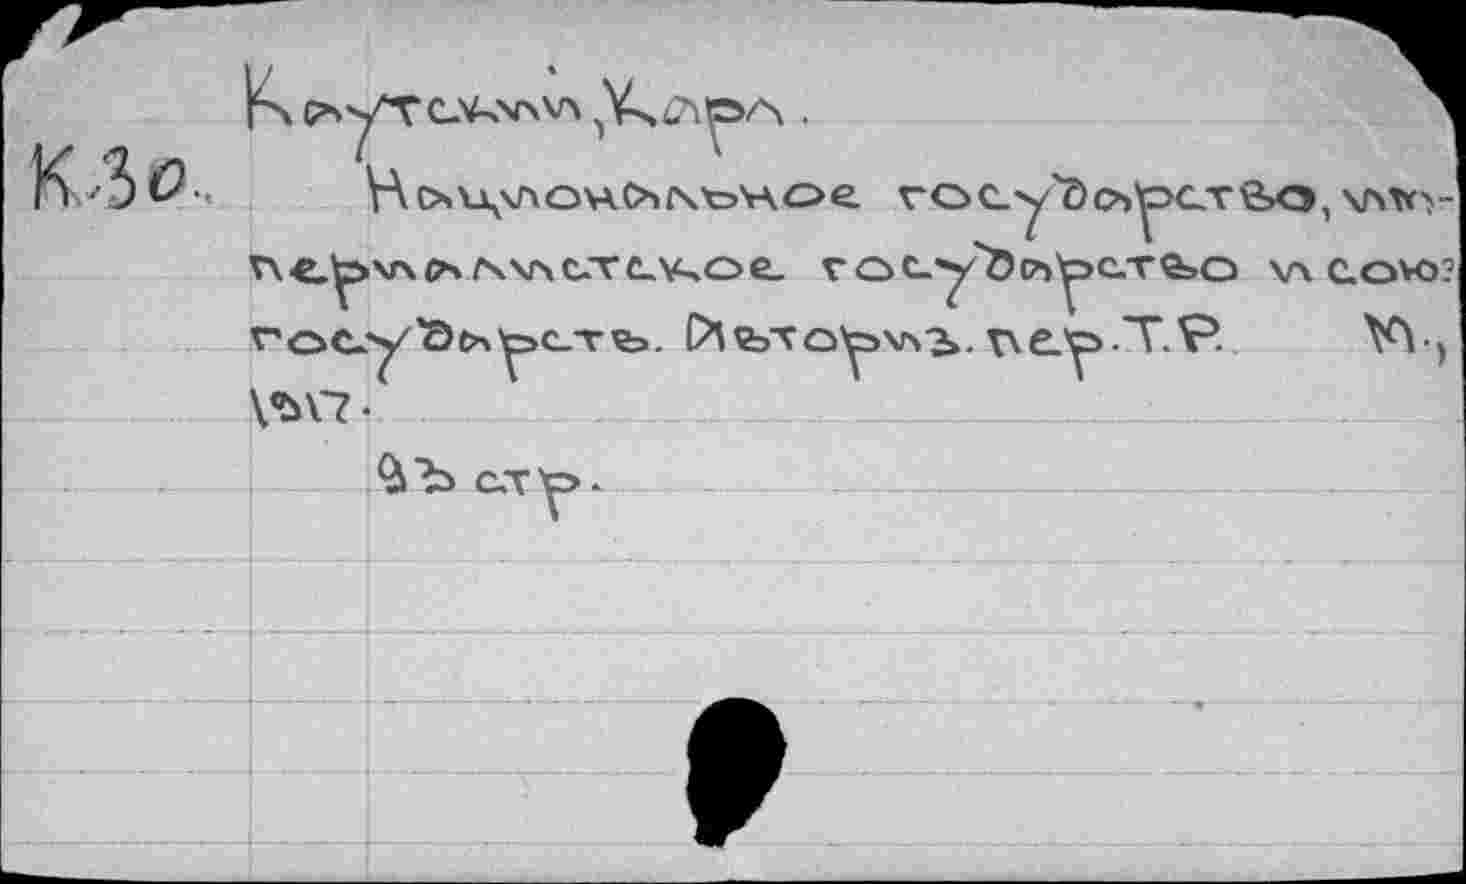 Каутский, Карл.
К-30.. Национальное государство, им-
периалистское государство и союз
государств. Авториз. пер. Т.Р. М.,
1917.
93 стр.